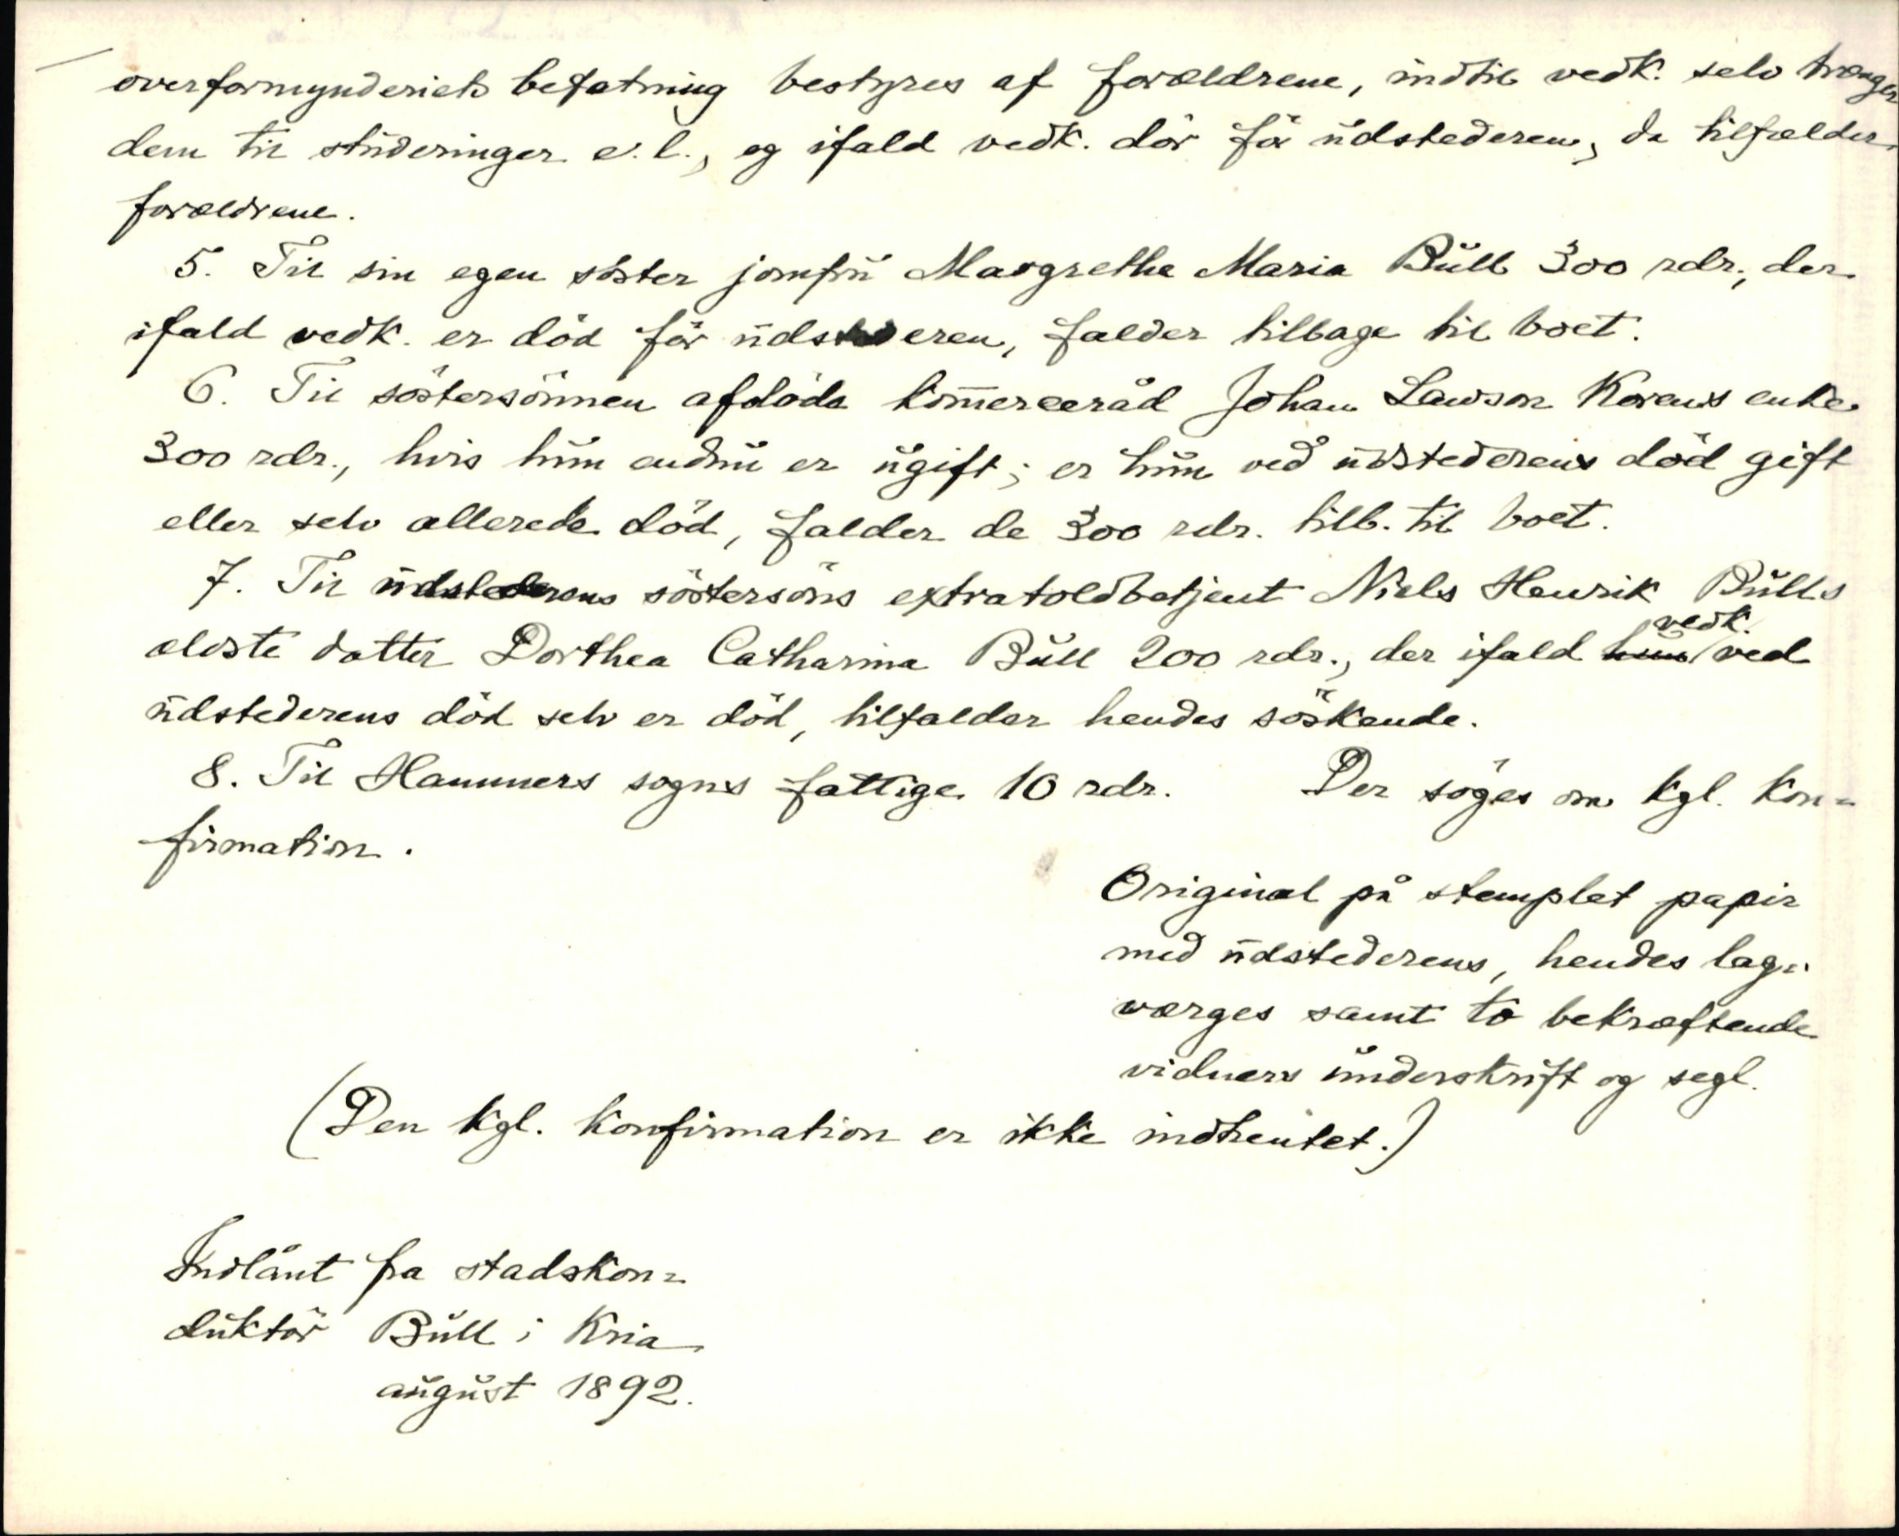 overformynderiets befatning bestyres af forældrene, indtil vedk. selv trænger
dem til studeringer e. l., og ifald vedk. dör för udstederen, da tilfalder
forældrene.
5. Til sin egen söster jomfru Margrethe Maria Bull 300 rdr., der
ifald vedk. er död för udstederen, falder tilbage til boet.
6. Til söstersönnen afdöde kom̅erceråd Johan Lawson Korens enke
300 rdr., hvis hun endnu er ugift; er hun ved udstederens död gift
eller selv allerede död, falder de 300 rdr. tilb. til boet.
7. Til udstederens söstersöns extratoldbetjent Niels Henrik Bulls
ældste datter Dorthea Catharina Bull 200 rdr., der ifald hun vedk. ved
udstederens död selv er död, tilfalder hendes söskende.
8. Til Hammers sogns fattige 10 rdr. Der söges om kgl. kon=
firmation.
Original på stemplet papir
med udstederens, hendes lag=
værges samt to bekræftende
vidners underskrift og segl.
(Den kgl. konfirmation er ikke indhentet.)
Indlånt fra stadskon=
duktör Bull i Kria
august 1892.